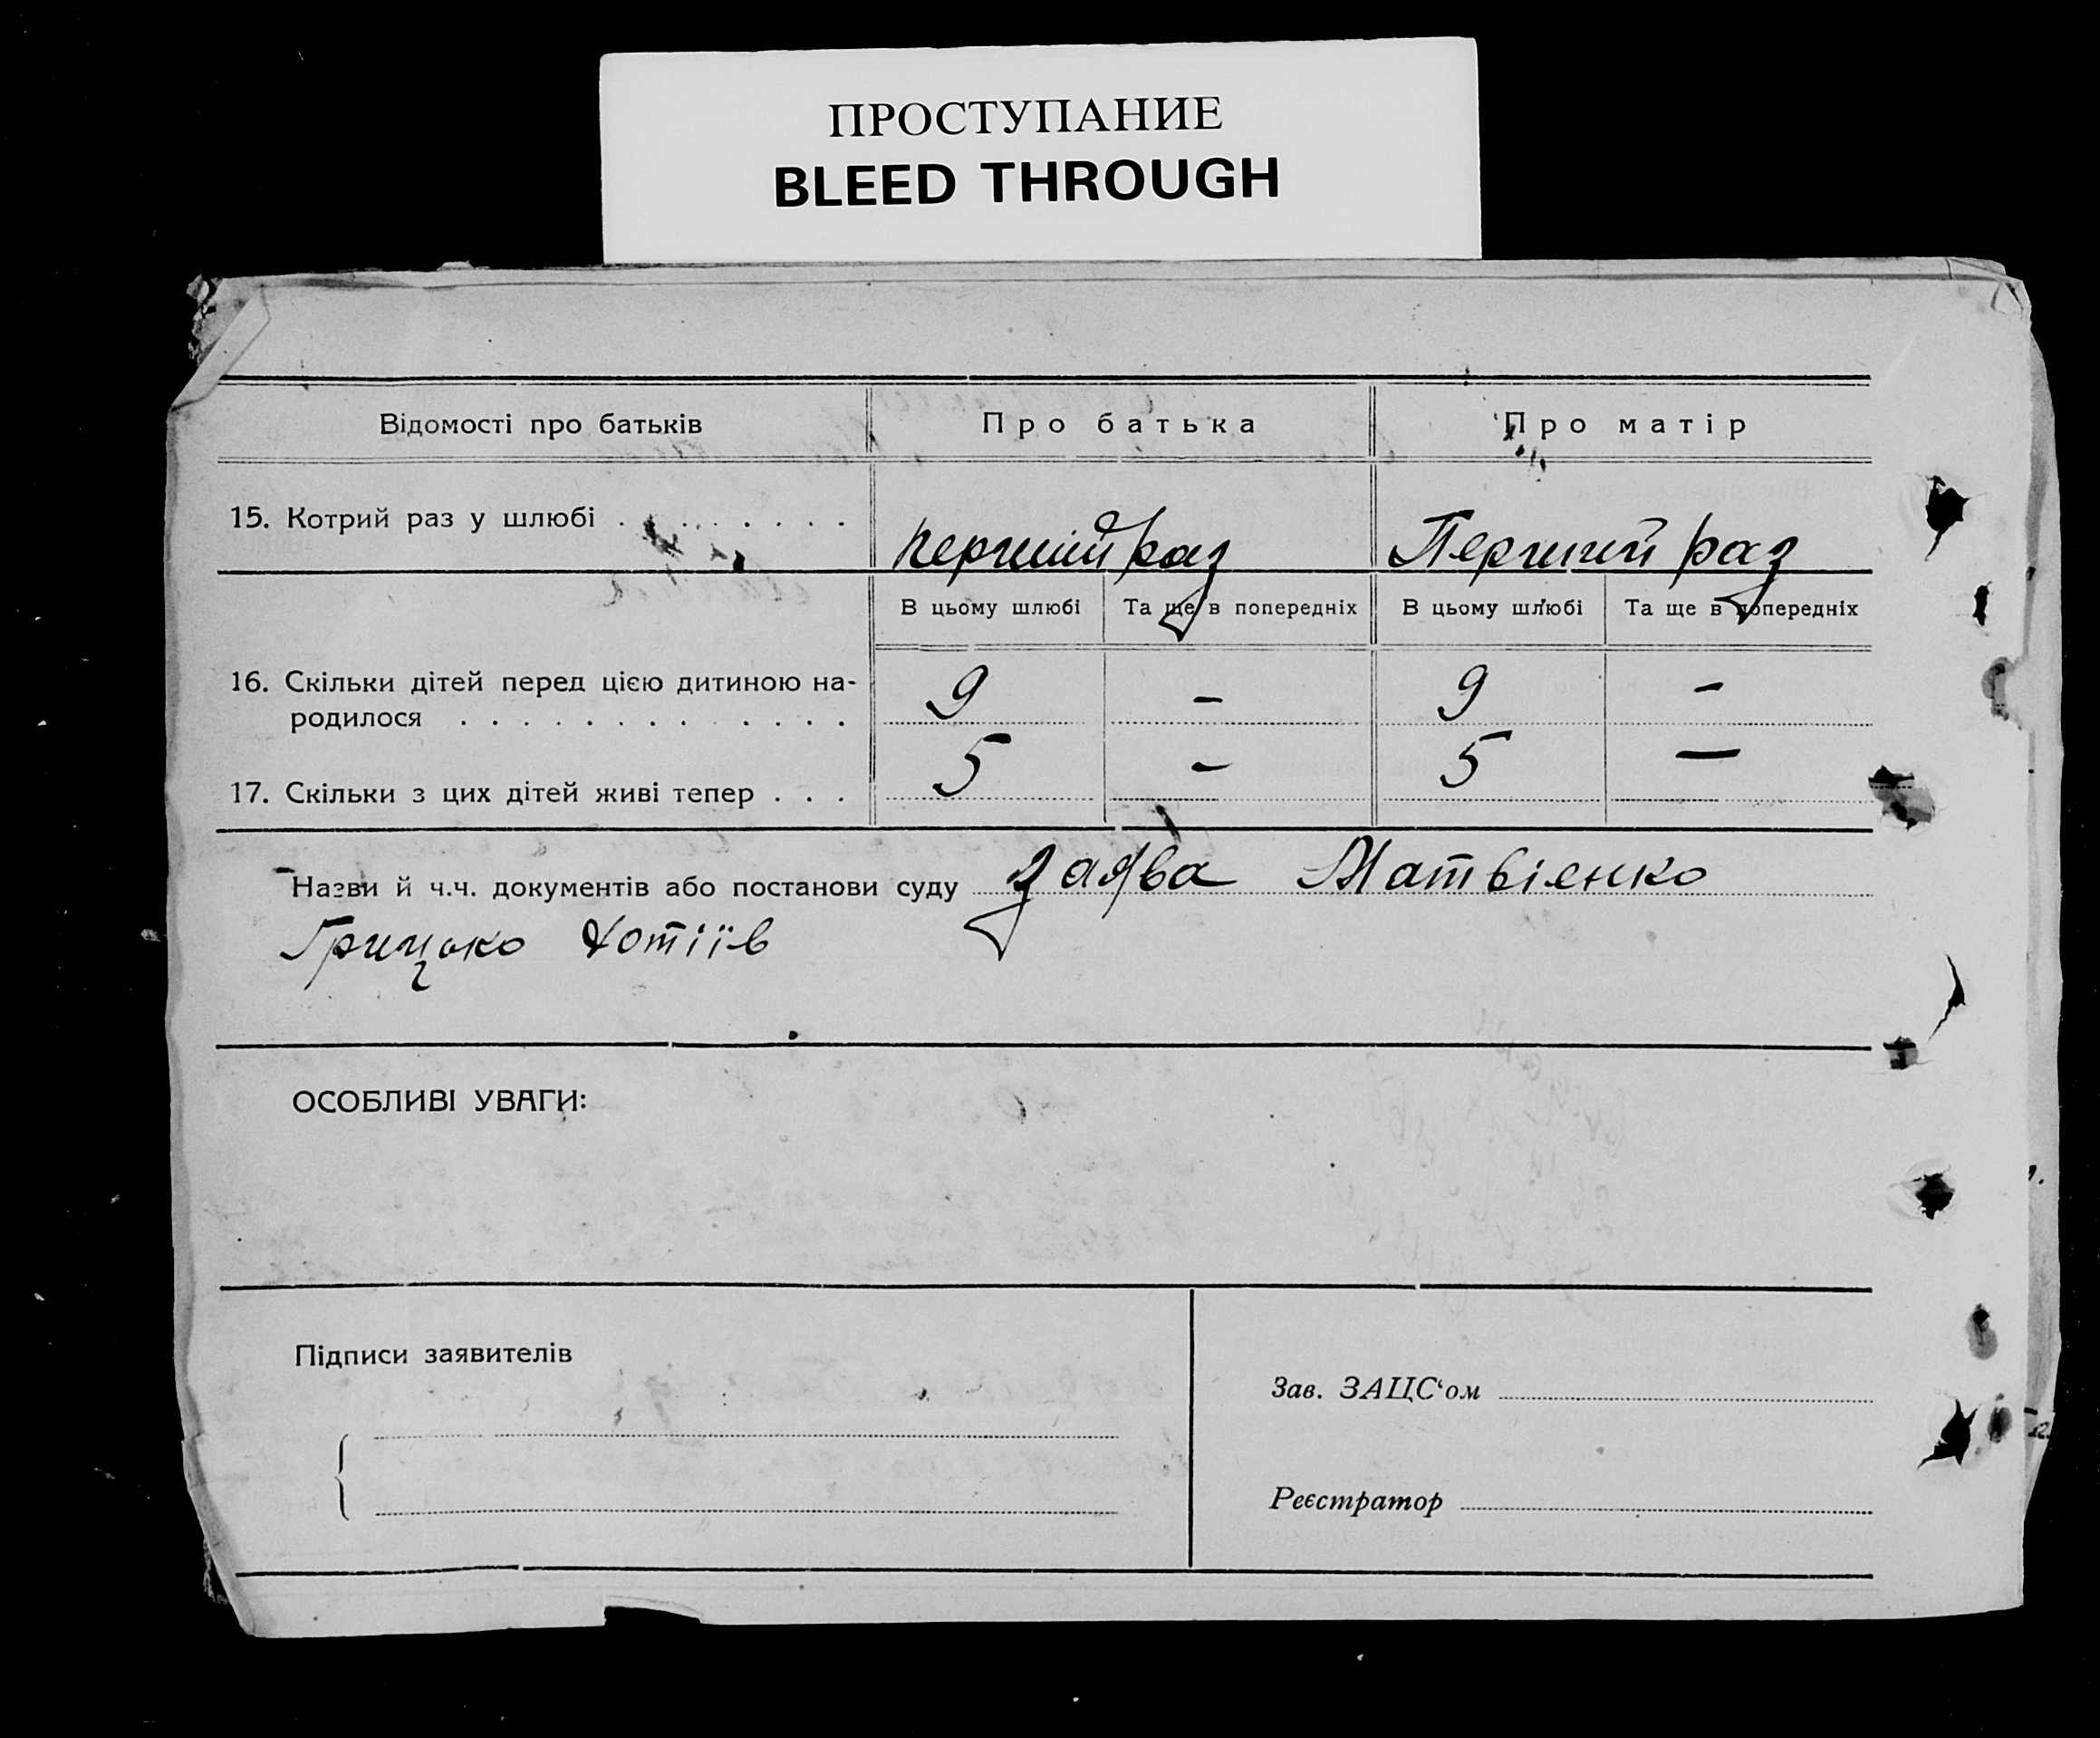 ПРОСТУПАНИЕ
BLEED THROUGH
Відомості про батьків Про батька Про матір
15. Котрий раз у шлюбі . . . . . . . . перший раз Перший раз
В цьому шлюбі Та ще в попередніх В цьому шлюбі Та ще в попередніх
16. Скільки дітей перед цією дитиною на-
родилося . . . . . . . . . . . . . 9 - 9 -
17. Скільки з цих дітей живі тепер . . . 5 - 5 —
Назви й ч.ч. документів або постанови суду заява Матвієнко
Грицько Хотіїв
ОСОБЛИВІ УВАГИ:
Підписи заявителів
Зав. ЗАЦС‘ом
Реєстратор